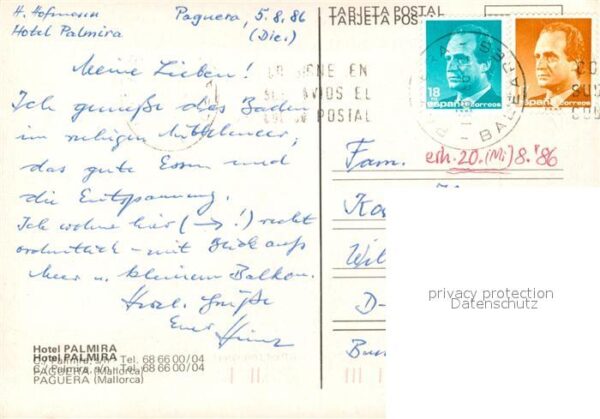 H. Hofmann Paguera, 5.8.86
Hotel Palmira (Die.)
Meine Lieben!
Ich genieße das Baden
im ruhigen Mittelmeer,
das gute Essen und
die Entspannung.
Ich wohne hier (→!) recht
ordentlich – mit Blick aufs
Meer u. kleinem Balkon.
Herzl. Grüße
Euer Heinz
Hotel PALMIRA
Hotel PALMIRA
C/ Palmira, s/n - Tel. 68 66 00/04
C/ Palmira, s/n - Tel. 68 66 00/04
PAGUERA (Mallorca)
PAGUERA (Mallorca)
TARJETA POSTAL
TARJETA POSTAL
18
españa correos
españa correos
EN
VIOS EL
POSTAL
BALEARES
Fam. erh. 20. (Mi) 8. '86
Ka
Wil
D-
privacy protection
Datenschutz